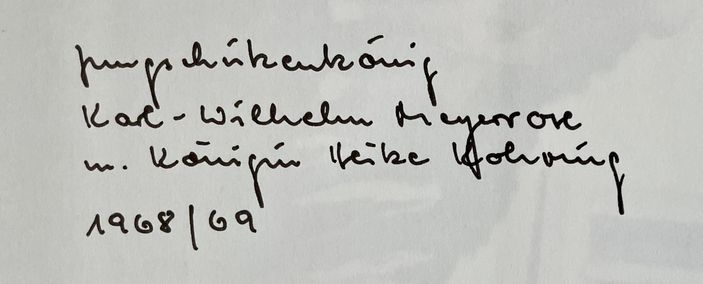 Jungschützenkönig
Karl-Wilhelm Meyerrose
m. Königin Heike
1968/69